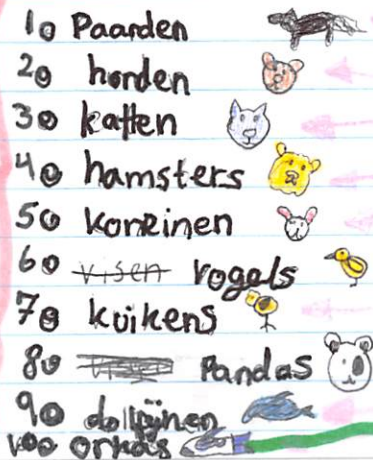 1. Paarden
2. honden
3. katten
4. hamsters
5. koneinen
6. visen vogels
7. kuikens
8. Pandas
9. dolfijnen
10. orkas